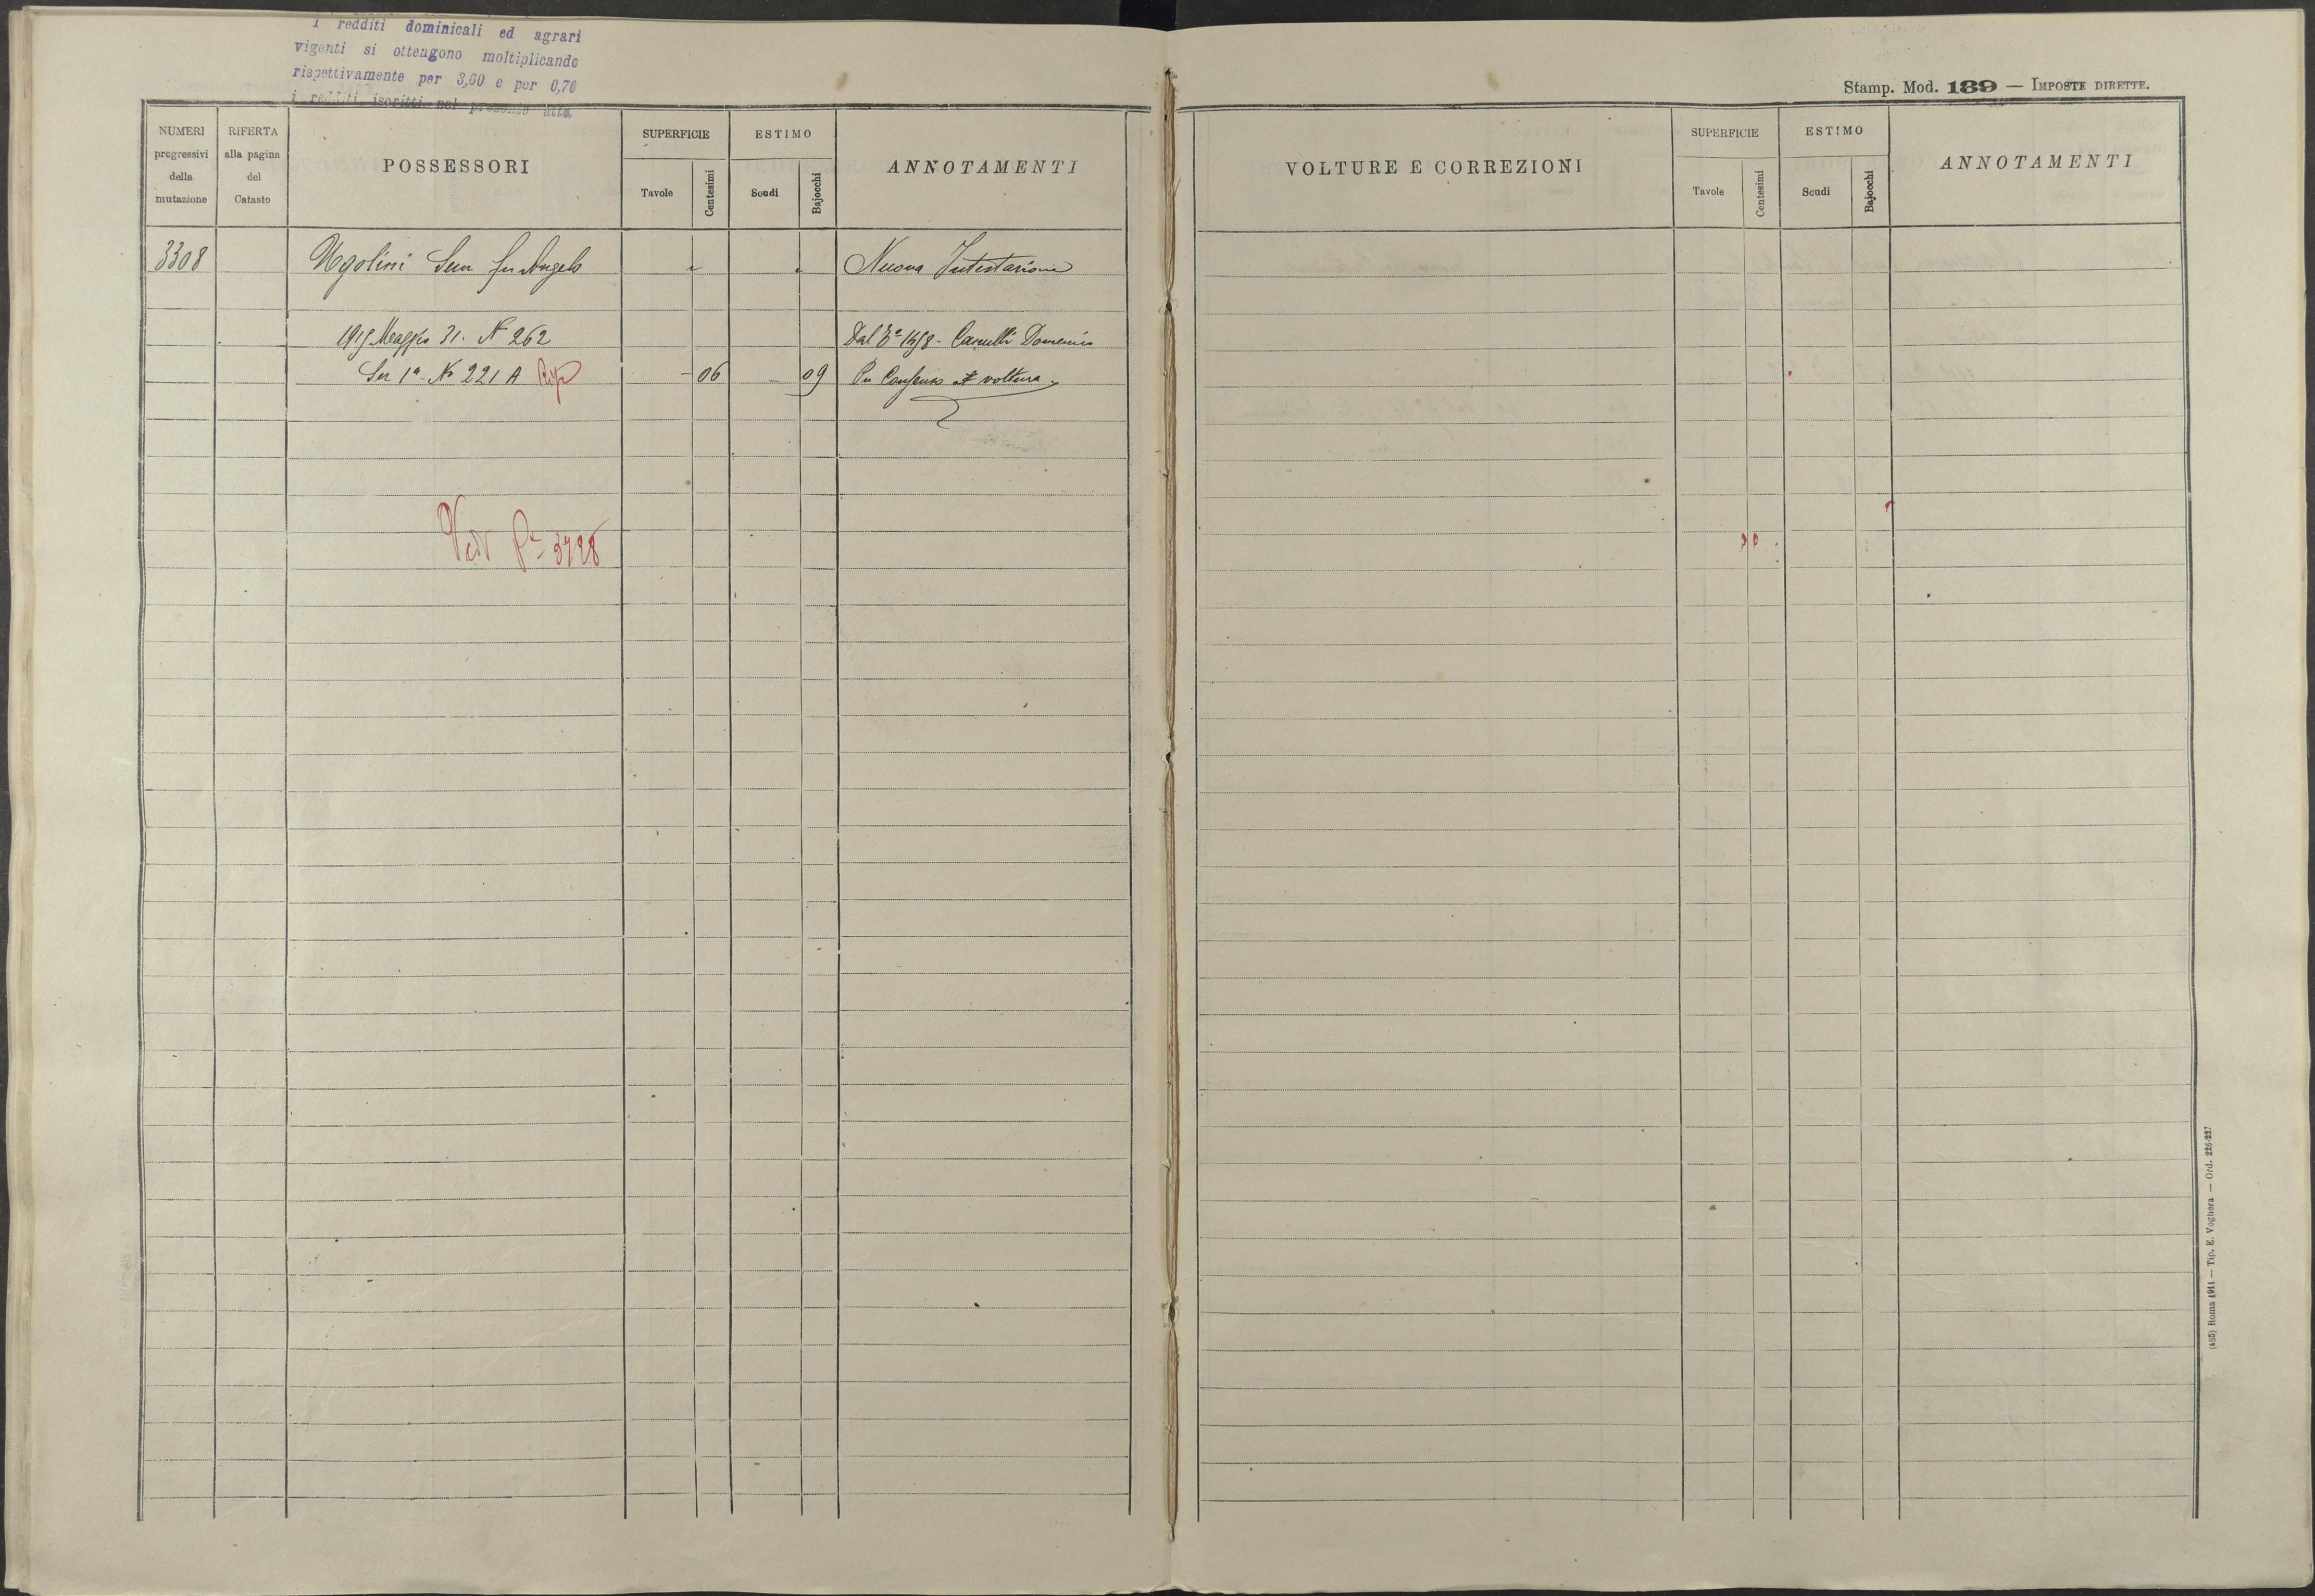 I redditi dominicali ed agrari
vigenti si ottengono moltiplicando
rispettivamente per 3,60 e per 0,70
i redditi iscritti nel presente atto
Stamp. Mod. 189 — IMPOSTE DIRETTE.
NUMERI progressivi della mutazione
RIFERTA alla pagina del Catasto
POSSESSORI
SUPERFICIE
Tavole
Centesimi
ESTIMO
Scudi
Bajocchi
ANNOTAMENTI
VOLTURE E CORREZIONI
SUPERFICIE
Tavole
Centesimi
ESTIMO
Scudi
Bajocchi
ANNOTAMENTI
3308 Ugolini fu Angelo Nuova Intestazione
Maggio 31. N 262 Dal Domenico
Ser 1a No 221 A 06 09 Per Consenso voltura
Vedi 3728
(485) Roma 1911 — Tip. E. Voghera — Ord. 226-227